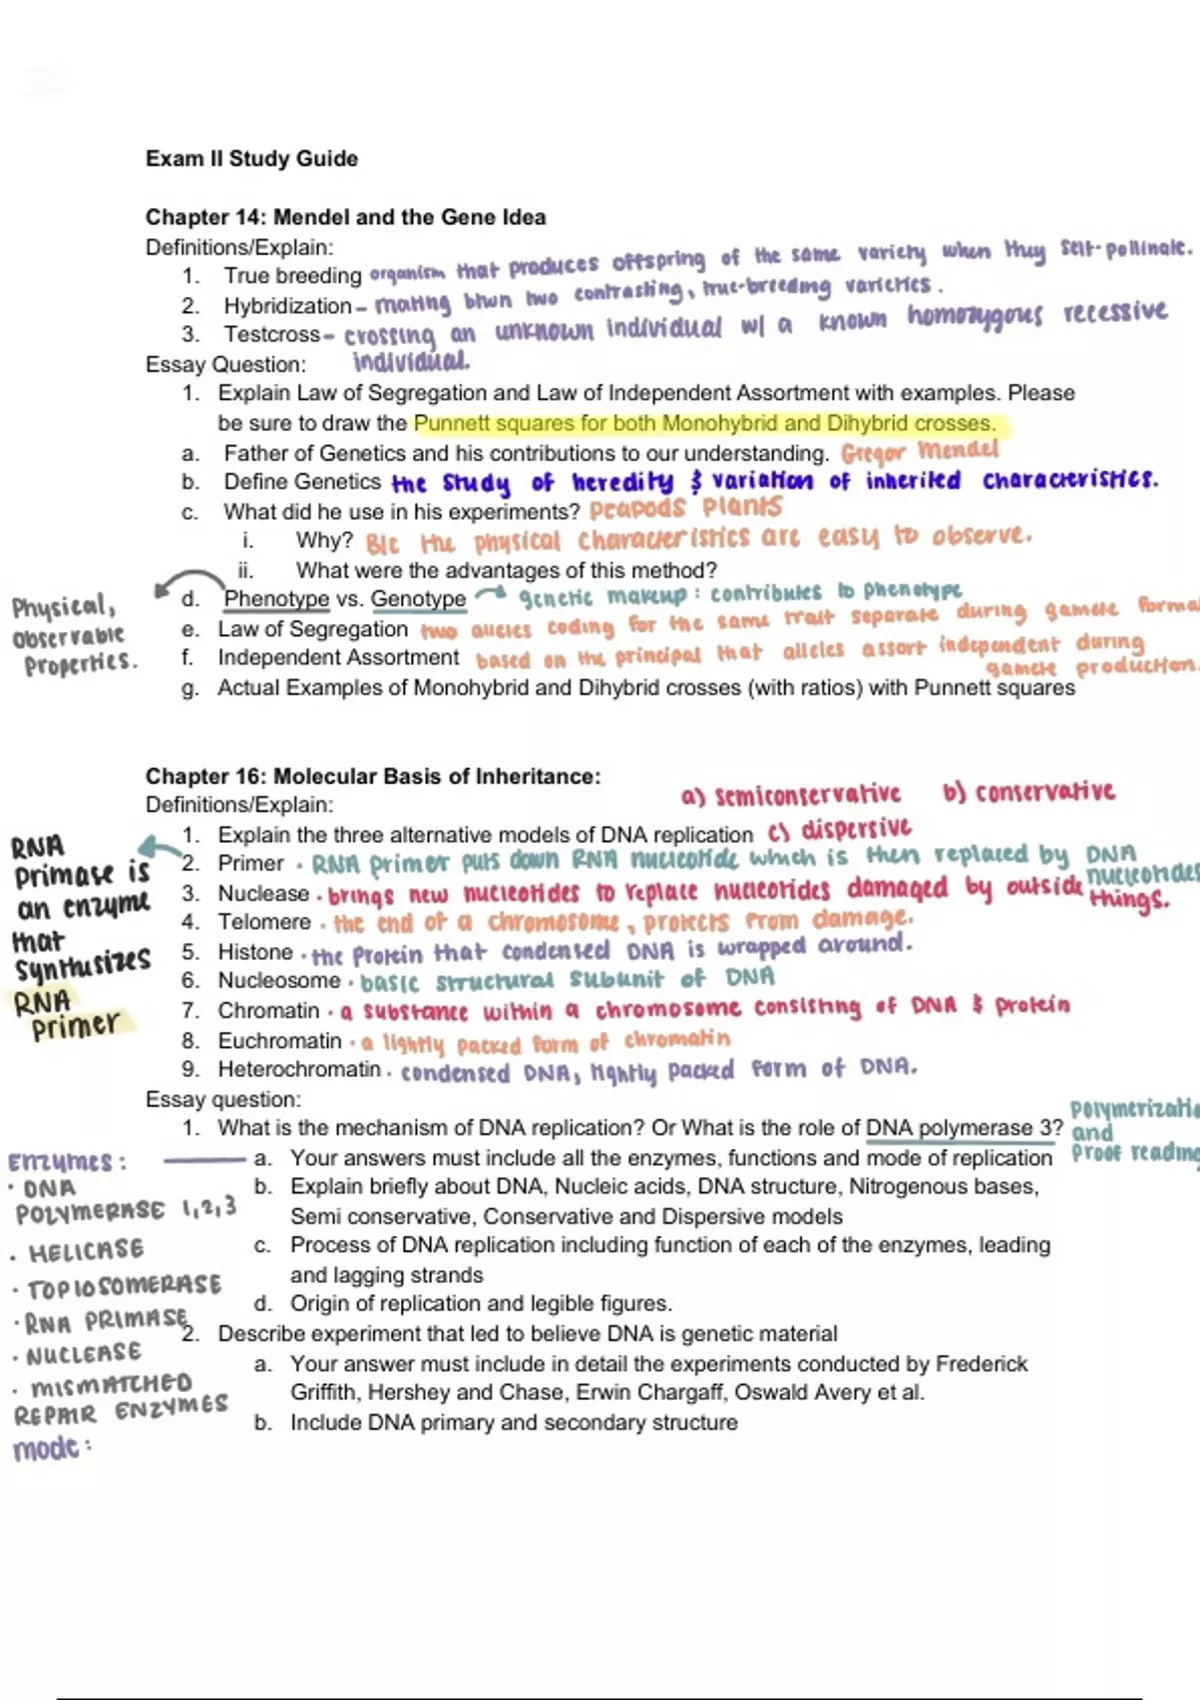 Exam II Study Guide
Chapter 14: Mendel and the Gene Idea
Definitions/Explain:
1. True breeding organism that produces offspring of the same variety when they self-pollinate.
2. Hybridization – mating btwn two contrasting, true-breeding varieties.
3. Testcross – crossing an unknown individual w/ a known homozygous recessive
individual.
Essay Question:
1. Explain Law of Segregation and Law of Independent Assortment with examples. Please
be sure to draw the Punnett squares for both Monohybrid and Dihybrid crosses.
a. Father of Genetics and his contributions to our understanding. Gregor Mendel
b. Define Genetics the study of heredity & variation of inherited characteristics.
c. What did he use in his experiments? peapods plants
i. Why? B/c the physical characteristics are easy to observe.
ii. What were the advantages of this method?
d. Phenotype vs. Genotype → genetic makeup: contributes to phenotype
Physical,
observable
Properties.
e. Law of Segregation two alleles coding for the same trait separate during gamete forma
f. Independent Assortment based on the principal that alleles assort independent during
gamete production.
g. Actual Examples of Monohybrid and Dihybrid crosses (with ratios) with Punnett squares
Chapter 16: Molecular Basis of Inheritance:
Definitions/Explain:
a) semiconservative b) conservative
1. Explain the three alternative models of DNA replication c) dispersive
2. Primer · RNA primer puts down RNA nucleotide which is then replaced by DNA
nucleotides
3. Nuclease · brings new nucleotides to replace nucleotides damaged by outside
things.
4. Telomere · the end of a chromosome, protects from damage.
5. Histone · the protein that condensed DNA is wrapped around.
6. Nucleosome · basic structural subunit of DNA
7. Chromatin · a substance within a chromosome consisting of DNA & protein
8. Euchromatin · a lightly packed form of chromatin
9. Heterochromatin · condensed DNA, tightly packed form of DNA.
RNA
primase is
an enzyme
that
synthusizes
RNA
primer
Essay question:
1. What is the mechanism of DNA replication? Or What is the role of DNA polymerase 3?
polymerizatio
and
proof reading
a. Your answers must include all the enzymes, functions and mode of replication
b. Explain briefly about DNA, Nucleic acids, DNA structure, Nitrogenous bases,
Semi conservative, Conservative and Dispersive models
c. Process of DNA replication including function of each of the enzymes, leading
and lagging strands
d. Origin of replication and legible figures.
2. Describe experiment that led to believe DNA is genetic material
a. Your answer must include in detail the experiments conducted by Frederick
Griffith, Hershey and Chase, Erwin Chargaff, Oswald Avery et al.
b. Include DNA primary and secondary structure
Enzymes:
· DNA
POLYMERASE 1,2,3
· HELICASE
· TOPIOSOMERASE
· RNA PRIMASE
· NUCLEASE
· MISMATCHED
REPAIR ENZYMES
mode: